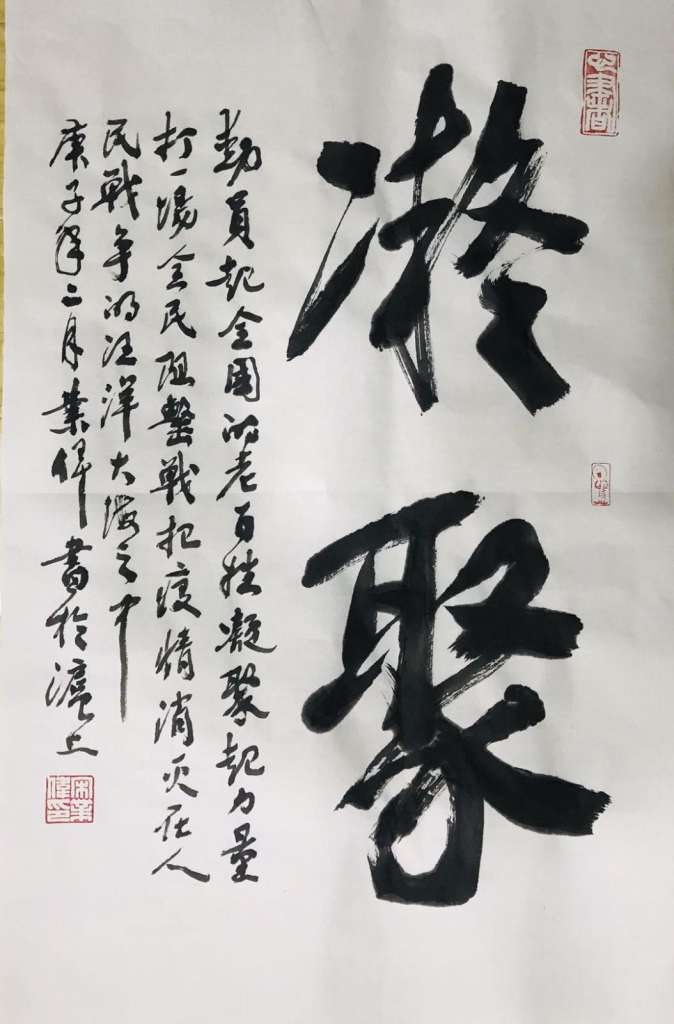 凝聚
動員起全國的老百姓凝聚起力量
打一場全民阻擊戰把疫情消灭在人
民戰争的汪洋大海之中
庚子年二月業偉書於滬上
宋業偉印